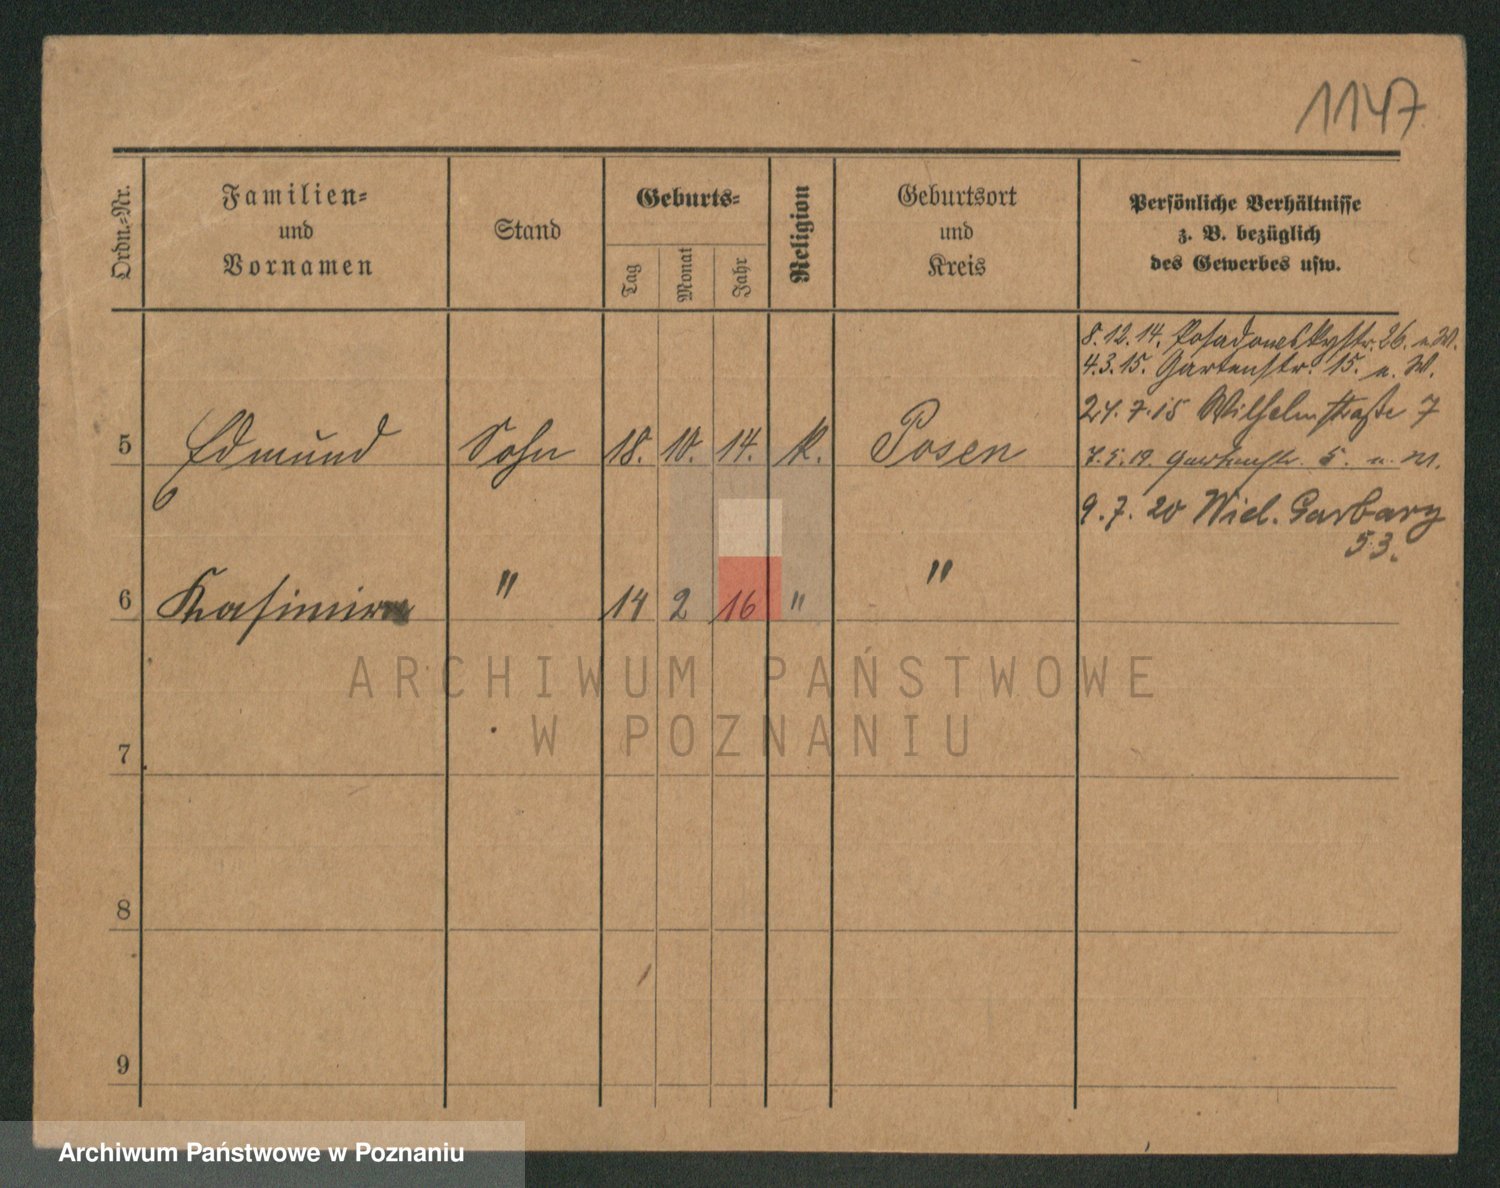 1147
Ordn.-Nr.
Familien-
und
Vornamen
Stand
Geburts-
Tag
Monat
Jahr
Religion
Geburtsort
und
Kreis
Persönliche Verhältnisse
z. B. bezüglich
des Gewerbes usw.
8.12.14. Posadowskystr. 26. u. W.
4.3.15. Gartenstr. 15. u. W.
24.7.15 Wilhelmstraße 7
5 Edmund Sohn 18. 10. 14. k. Posen
7.5.19. Gartenstr. 5. u. M.
9.7.20 Wiel. Garbary
53.
6 Kasimir " 14 2 16 " "
ARCHIWUM PAŃSTWOWE
W POZNANIU
7
8
9
Archiwum Państwowe w Poznaniu